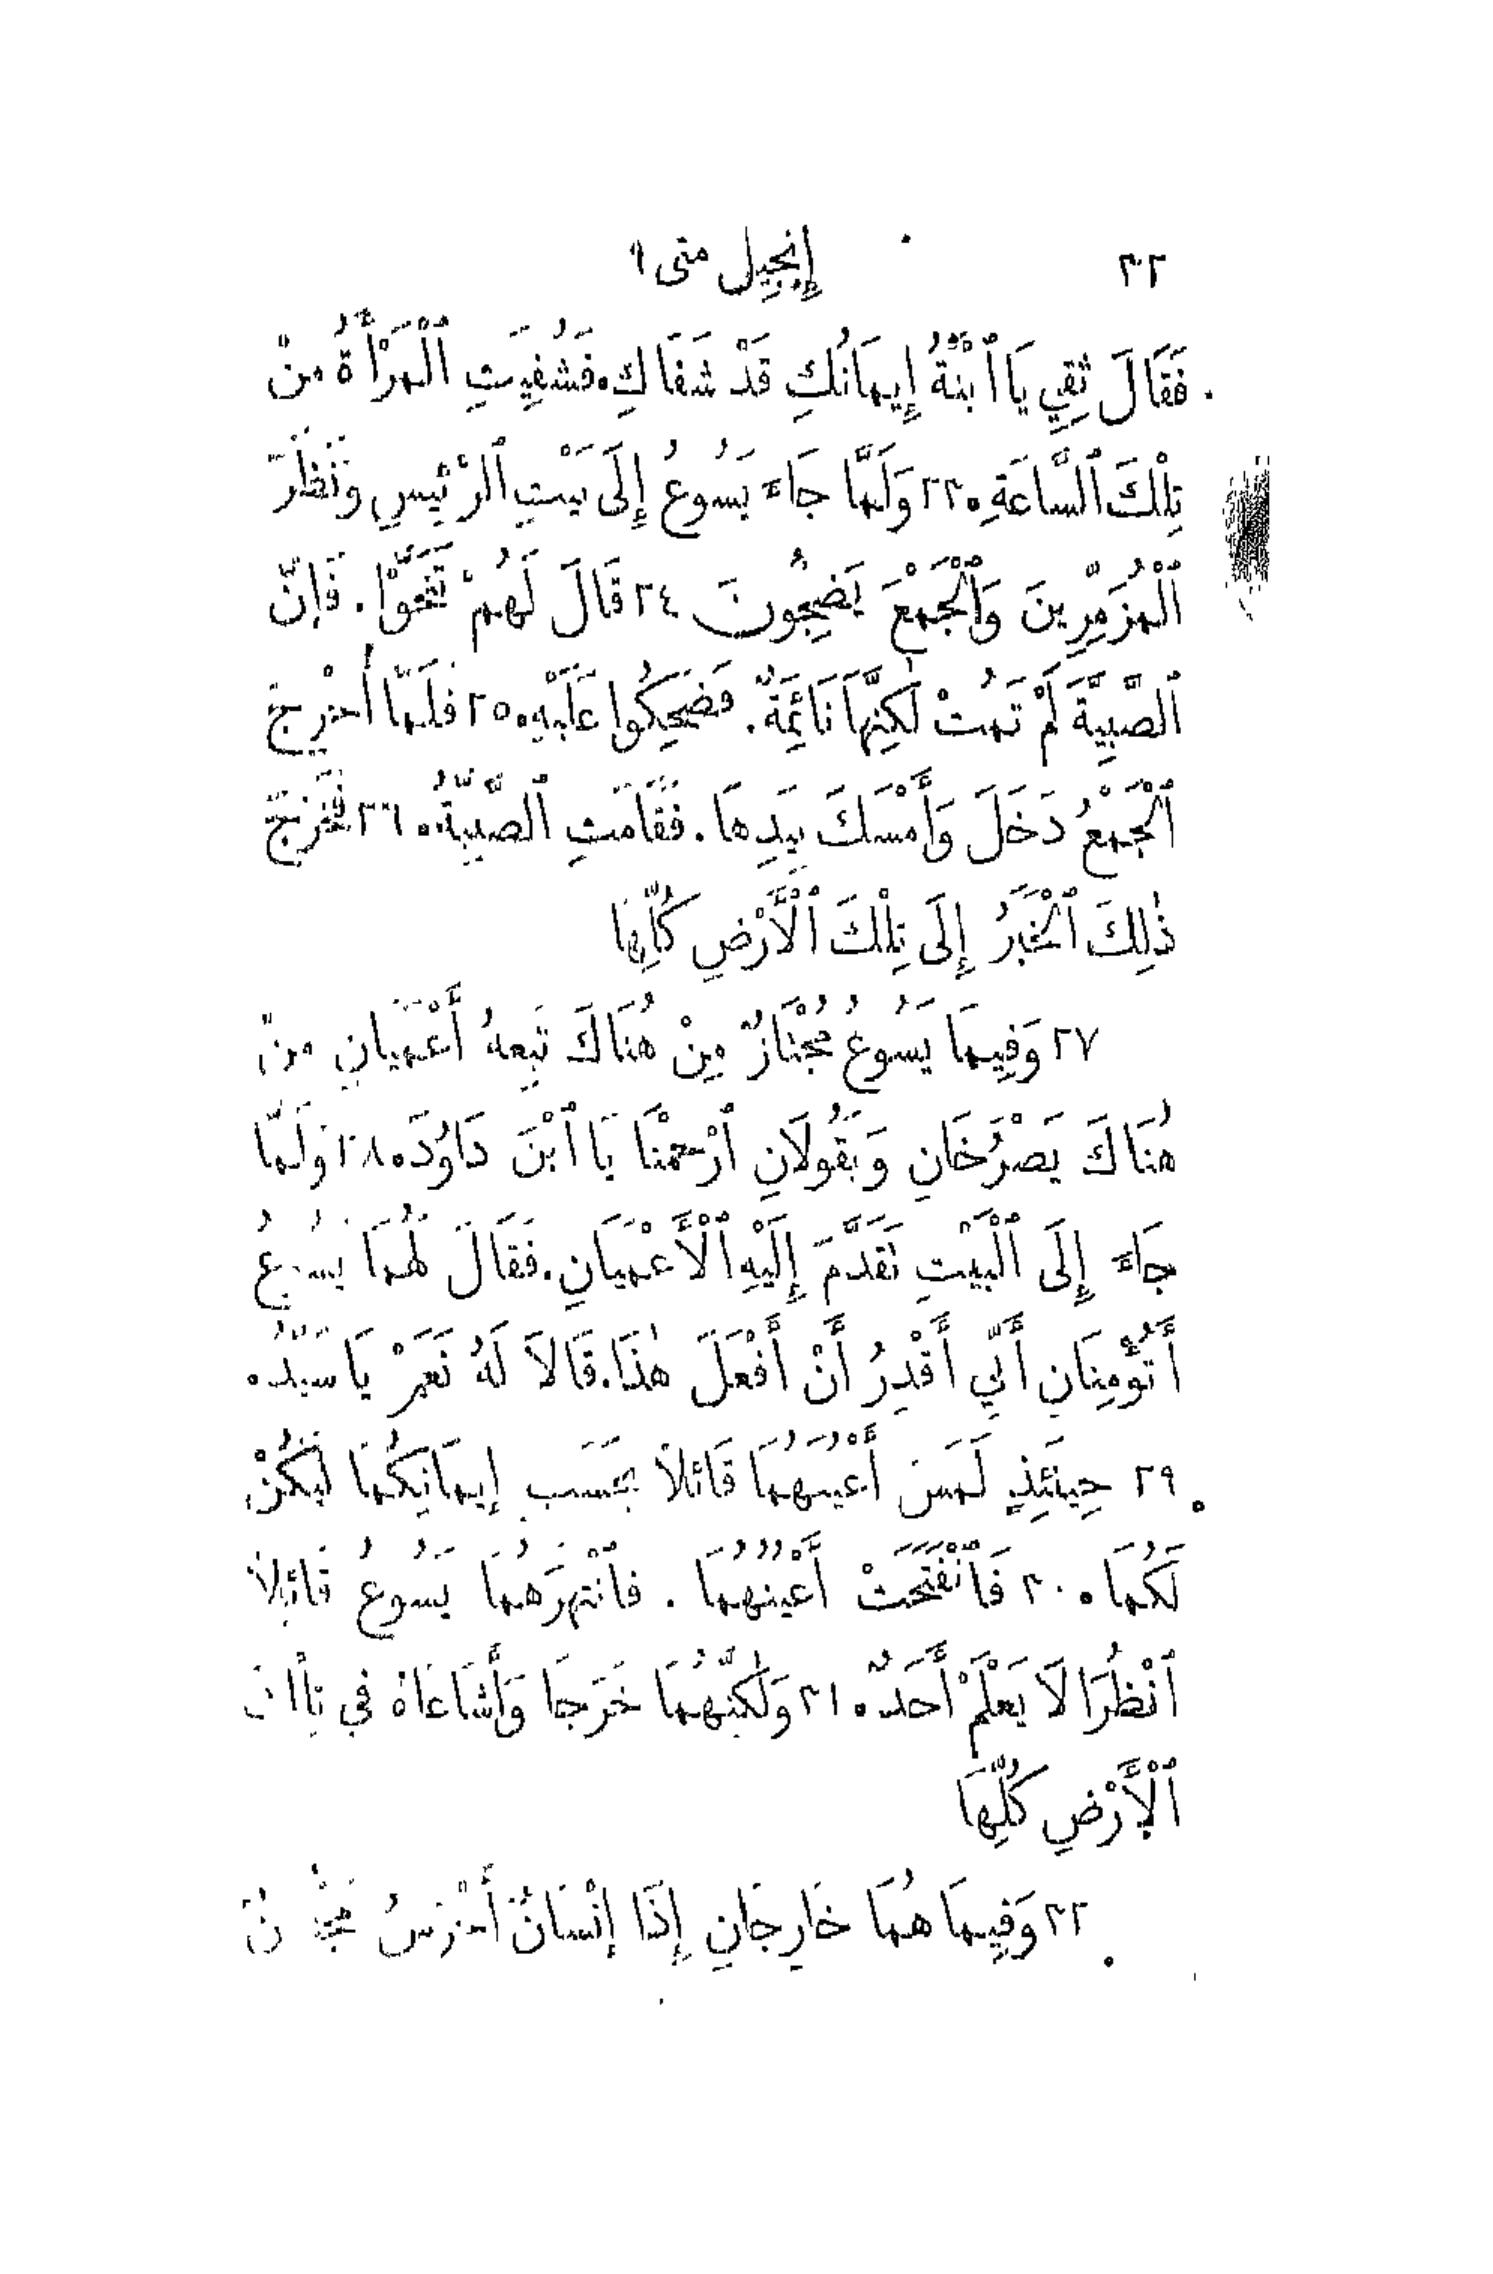 ٣٢ إِنْجِيل متى ٩
فَقَالَ ثِقِي يَا ٱبْنَةُ إِيمَانُكِ قَدْ شَفَاكِ. فَشُفِيَتِ ٱلْمَرْأَةُ مِنْ
تِلْكَ ٱلسَّاعَةِ. ٢٣ وَلَمَّا جَاءَ يَسُوعُ إِلَى بَيْتِ ٱلرَّئِيسِ وَنَظَرَ
ٱلْمُزَمِّرِينَ وَٱلْجَمْعَ يَضِجُّونَ ٢٤ قَالَ لَهُمْ تَنَحَّوْا. فَإِنَّ
ٱلصَّبِيَّةَ لَمْ تَمُتْ لٰكِنَّهَا نَائِمَةٌ. فَضَحِكُوا عَلَيْهِ. ٢٥ فَلَمَّا أُخْرِجَ
ٱلْجَمْعُ دَخَلَ وَأَمْسَكَ بِيَدِهَا. فَقَامَتِ ٱلصَّبِيَّةُ. ٢٦ فَخَرَجَ
ذٰلِكَ ٱلْخَبَرُ إِلَى تِلْكَ ٱلْأَرْضِ كُلِّهَا
٢٧ وَفِيمَا يَسُوعُ مُجْتَازٌ مِنْ هُنَاكَ تَبِعَهُ أَعْمَيَانِ مِنْ
هُنَاكَ يَصْرُخَانِ وَيَقُولَانِ ٱرْحَمْنَا يَا ٱبْنَ دَاوُدَ. ٢٨ وَلَمَّا
جَاءَ إِلَى ٱلْبَيْتِ تَقَدَّمَ إِلَيْهِ ٱلْأَعْمَيَانِ. فَقَالَ لَهُمَا يَسُوعُ
أَتُؤْمِنَانِ أَنِّي أَقْدِرُ أَنْ أَفْعَلَ هٰذَا. قَالَا لَهُ نَعَمْ يَا سَيِّدُ.
٢٩ حِينَئِذٍ لَمَسَ أَعْيُنَهُمَا قَائِلًا بِحَسَبِ إِيمَانِكُمَا لِيَكُنْ
لَكُمَا. ٣٠ فَٱنْفَتَحَتْ أَعْيُنُهُمَا. فَٱنْتَهَرَهُمَا يَسُوعُ قَائِلًا
ٱنْظُرَا لَا يَعْلَمْ أَحَدٌ. ٣١ وَلٰكِنَّهُمَا خَرَجَا وَأَشَاعَاهُ فِي تِلْكَ
ٱلْأَرْضِ كُلِّهَا
٣٢ وَفِيمَا هُمَا خَارِجَانِ إِذَا إِنْسَانٌ أَخْرَسُ مَجْنُونٌ